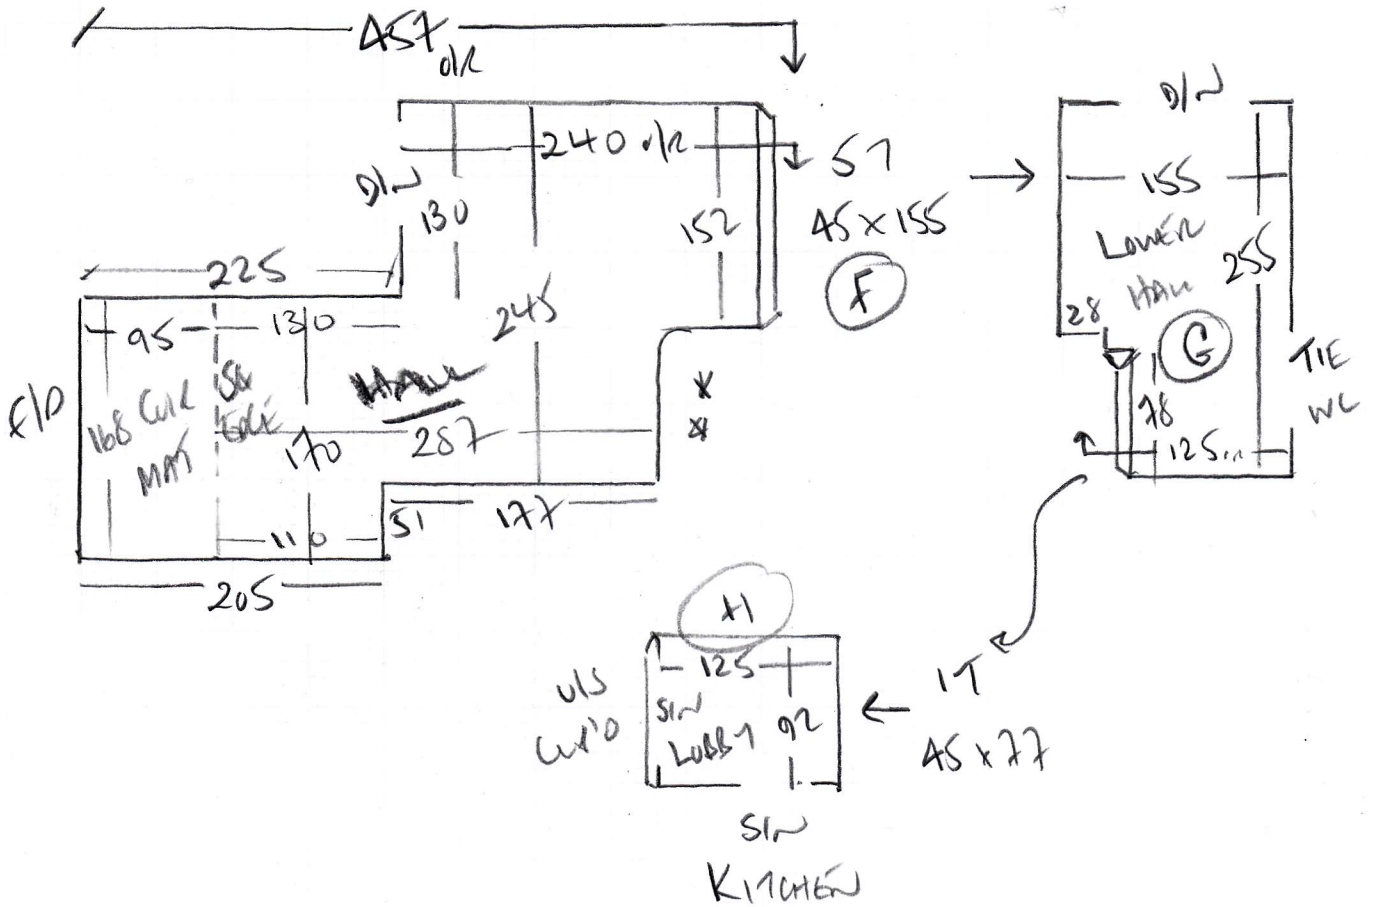 457
O/R
240 O/R
D/N
130
152
5T
45 x 155
F
225
95
130
245
F/D
168
CUR
MAT
SQ
EDGE
HALL
170
287
110
51
177
205
D/N
155
LOWER
HALL
255
28
G
78
125
TIE
WC
H
125
U/S
CUP'D
SIN
LOBBY
92
1T
45 x 77
SIN
KITCHEN